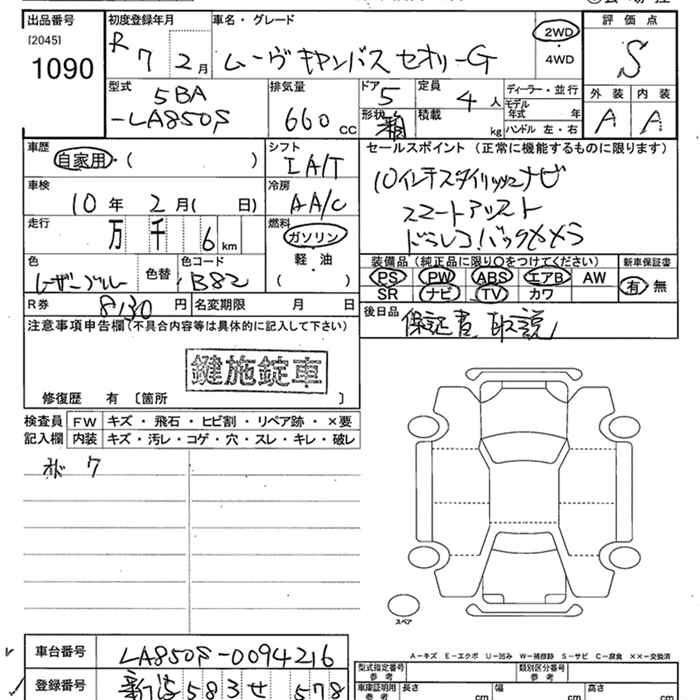 出品番号
[2045]
1090
初度登録年月
R7 2月
車名・グレード
ムーヴキャンバス セオリーG
2WD
4WD
評価点
S
外装 内装
A A
型式
5BA
-LA850S
排気量
660 cc
ドア
5
形状
定員
4人
積載
kg
ディーラー・並行
モデル年式 年
ハンドル 左・右
車歴
自家用・( )
シフト
IA/T
セールスポイント (正常に機能するものに限ります)
10インチスタイリッシュナビ
スマートアシスト
ドラレコ バックカメラ
車検
10年 2月( 日)
冷房
AA/C
走行
万 千 6 km
燃料
ガソリン
軽油
( )
色
レーザーブルー
色替
色コード
B82
装備品(純正品に限り○をつけてください)
PS PW ABS エアB AW
SR ナビ TV カワ
新車保証書
有 無
R券
8130円
名変期限 月 日
後日品
保証書、取説
注意事項申告欄(不具合内容等は具体的に記入して下さい)
鍵施錠車
修復歴 有〔箇所 〕
検査員記入欄
FW キズ・飛石・ヒビ割・リペア跡・×要
内装 キズ・汚レ・コゲ・穴・スレ・キレ・破レ
スペア
A-キズ E-エクボ U-凹み W-補修跡 S-サビ C-腐食 ××-交換済
車台番号
LA850S-0094216
登録番号
新潟 583 せ 578
型式指定番号
参考
類別区分番号
参考
車庫証明用
参考
長さ cm
幅 cm
高さ cm